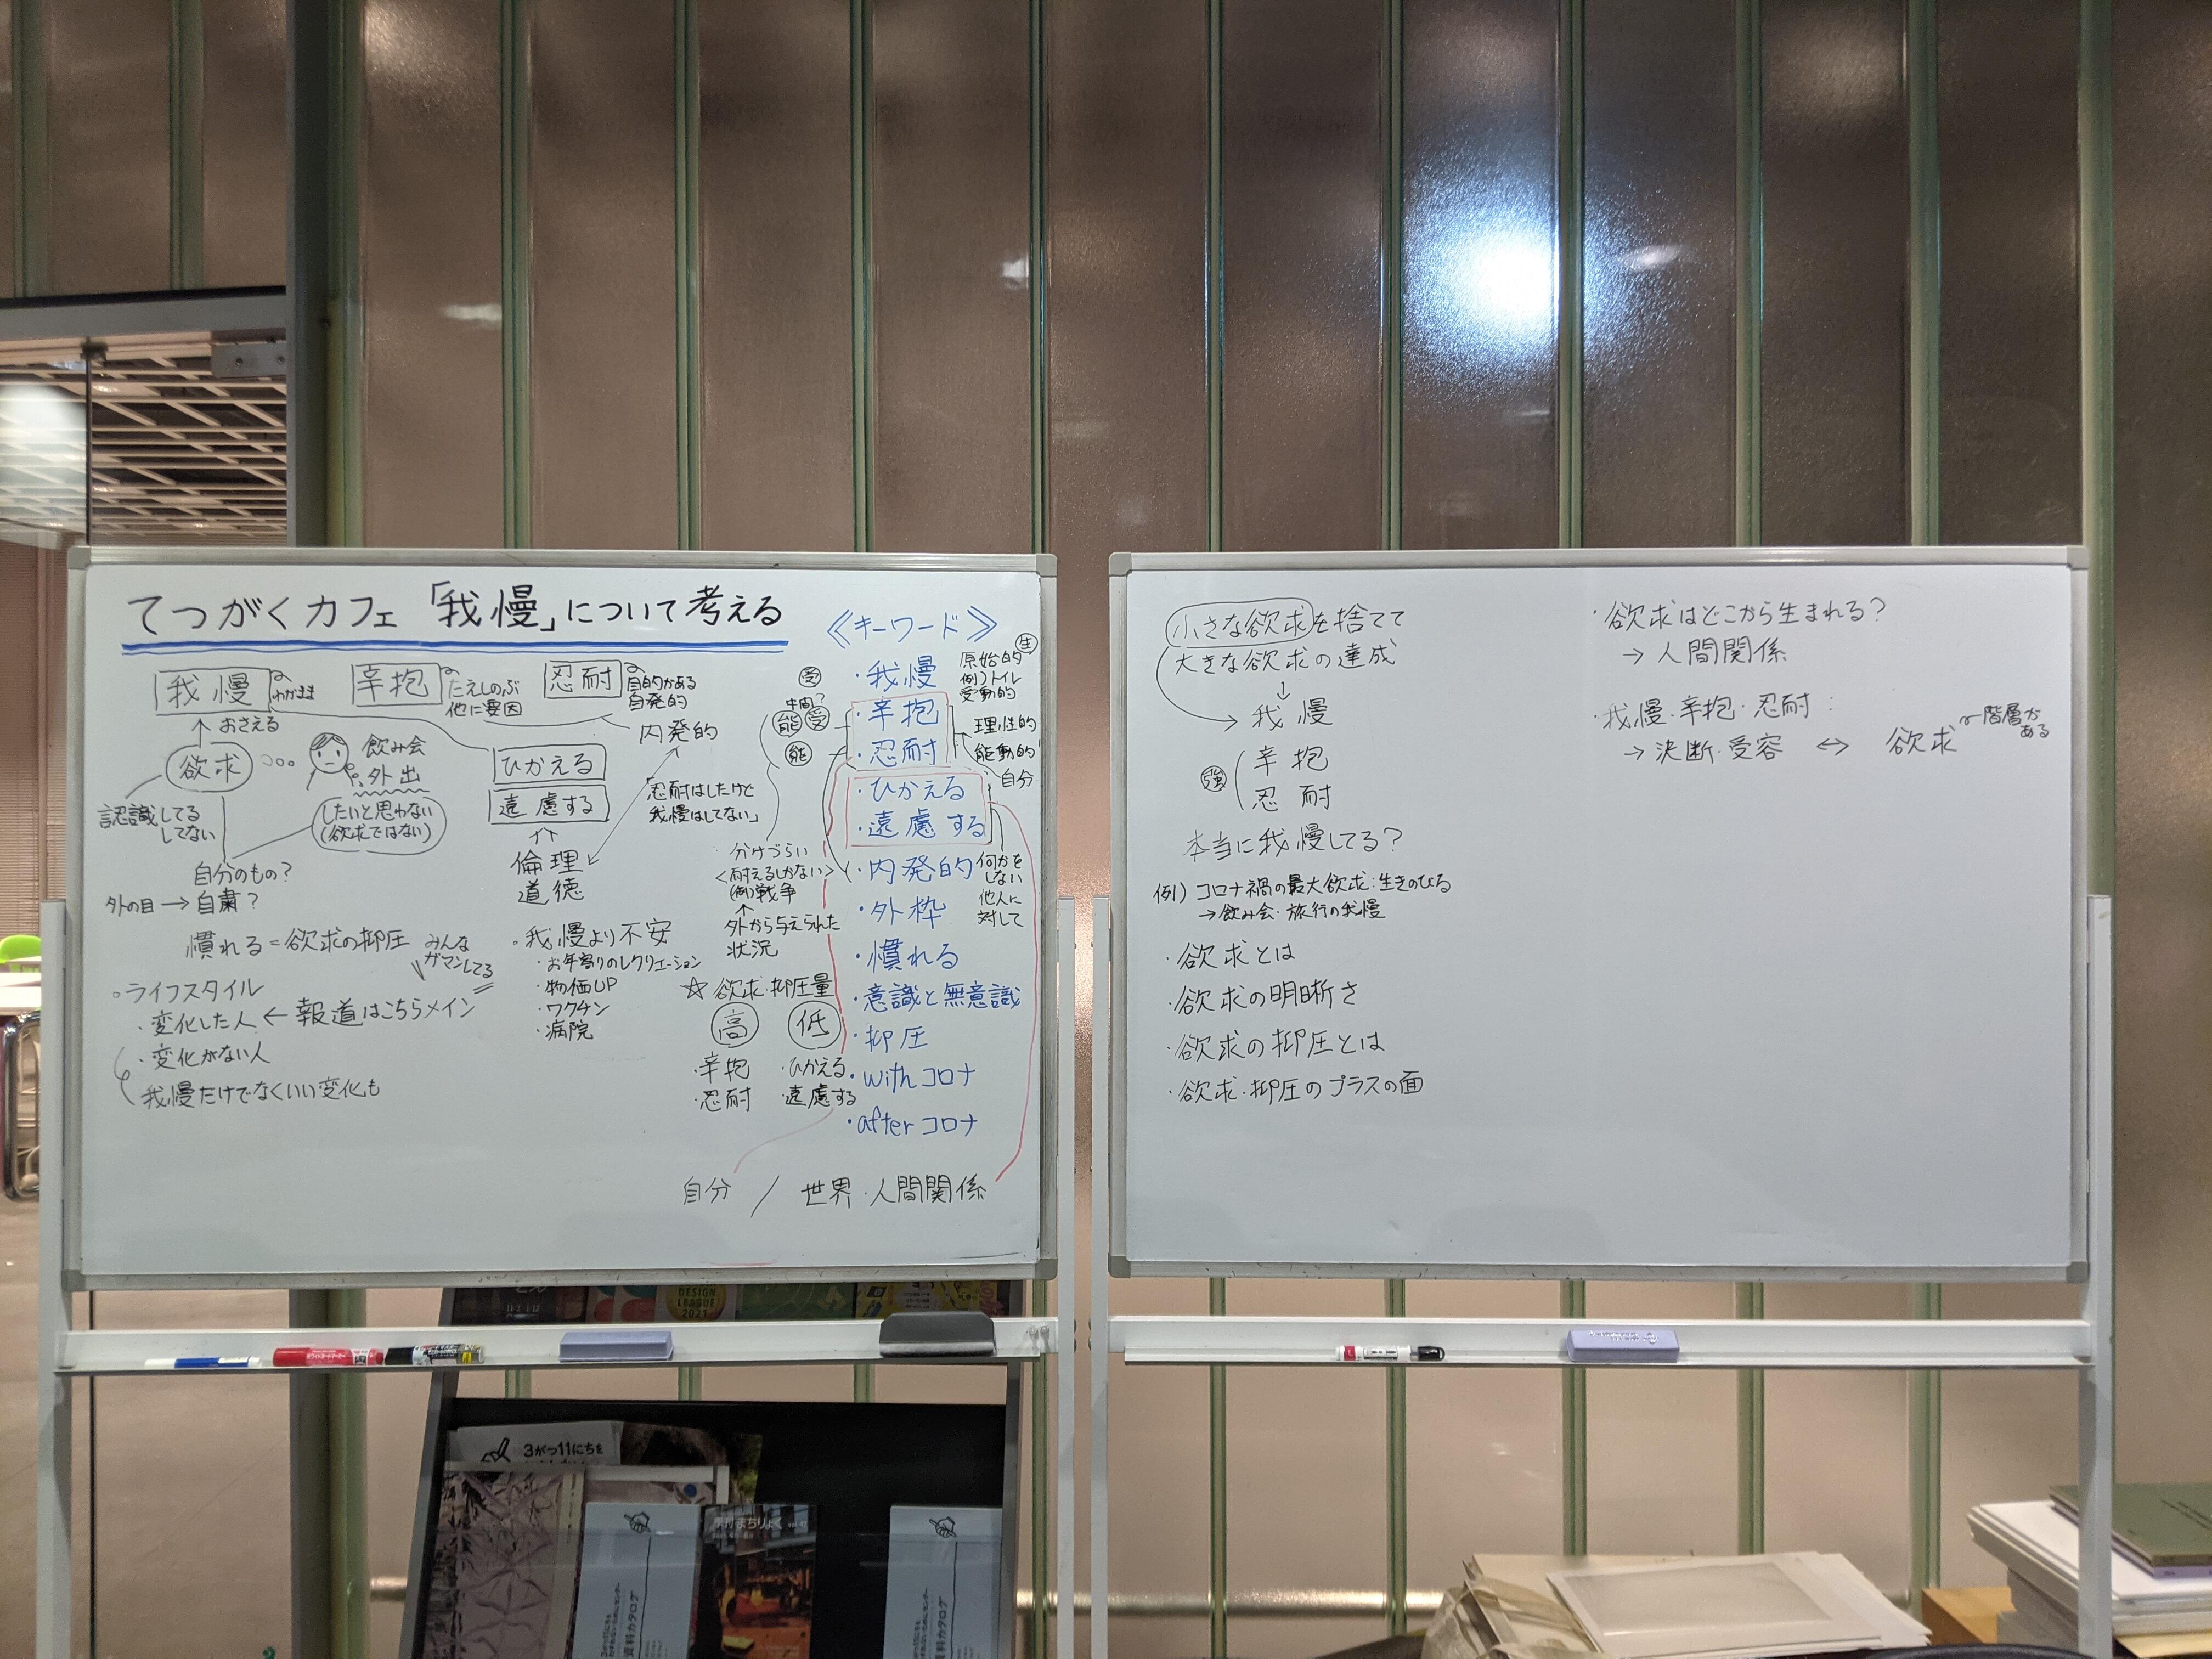 てつがくカフェ「我慢」について考える
我慢
わがまま
辛抱
たえしのぶ
他に要因
忍耐
目的がある
自発的
おさえる
欲求
飲み会
外出
したいと思わない
(欲求ではない)
認識してる
してない
自分のもの?
外の目→自粛?
慣れる=欲求の抑圧
みんな
ガマンしてる
。ライフスタイル
・変化した人←報道はこちらメイン
・変化がない人
我慢だけでなくいい変化も
ひかえる
遠慮する
倫理
道徳
内発的
「忍耐はしたけど
我慢はしてない」
。我慢より不安
・お年寄りのレクリエーション
・物価UP
・ワクチン
・病院
分けづらい
<耐えるしかない>
(例)戦争
外から与えられた
状況
☆欲求・抑圧量
高
・辛抱
・忍耐
低
・ひかえる
・遠慮する
《キーワード》
・我慢
原始的
生
例)トイレ
受動的
受
中間?
能 受
能
・辛抱
・忍耐
理性的
能動的
自分
・ひかえる
・遠慮する
何かを
しない
他人に
対して
・内発的
・外枠
・慣れる
・意識と無意識
・抑圧
・withコロナ
・afterコロナ
自分 / 世界・人間関係
小さな欲求を捨てて
大きな欲求の達成
↓
我慢
強
辛抱
忍耐
本当に我慢してる?
例) コロナ禍の最大欲求:生きのびる
→飲み会・旅行の我慢
・欲求とは
・欲求の明晰さ
・欲求の抑圧とは
・欲求・抑圧のプラスの面
・欲求はどこから生まれる?
→人間関係
・我慢・辛抱・忍耐:
→決断・受容 ⇔ 欲求
階層が
ある
DESIGN
LEAGUE
2021
3がつ11にちを
まちりょく
資料カタログ
資料カタログ